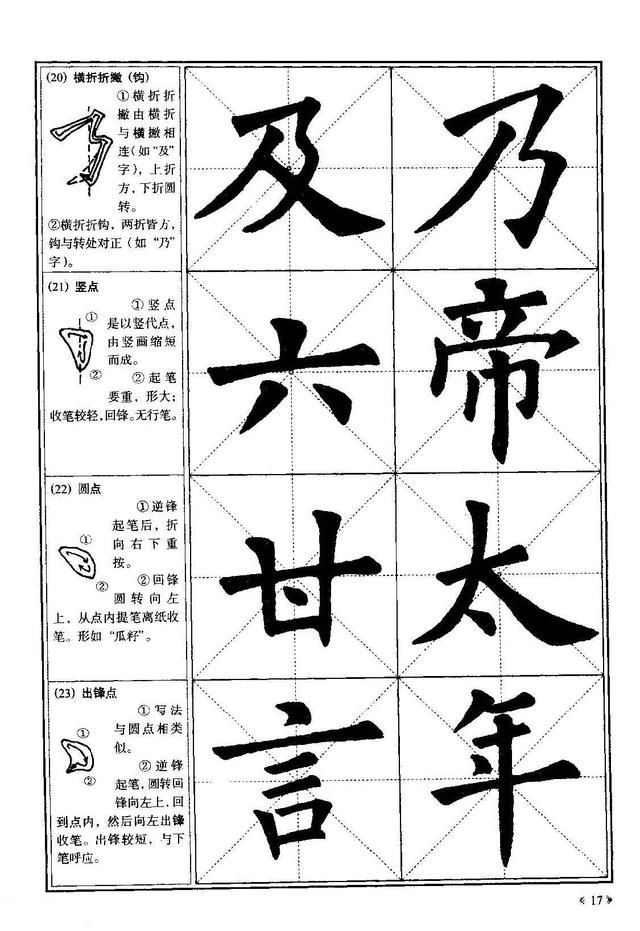 (20) 横折折撇（钩）
①横折折
撇由横折
与横撇相
连（如“及”
字），上折
方，下折圆
转。
②横折折钩，两折皆方，
钩与转处对正（如“乃”
字）。
及 乃
(21) 竖点
①竖点
是以竖代点，
由竖画缩短
而成。
②起笔
要重，形大；
收笔较轻，回锋。无行笔。
①
②
六 帝
(22) 圆点
①逆锋
起笔后，折
向右下重
按。
②回锋
圆转向左
上，从点内提笔离纸收
笔。形如“瓜籽”。
①
②
甘 太
(23) 出锋点
①写法
与圆点相类
似。
②逆锋
起笔，圆转回
锋向左上，回
到点内，然后向左出锋
收笔。出锋较短，与下
笔呼应。
①
②
言 年
«17»